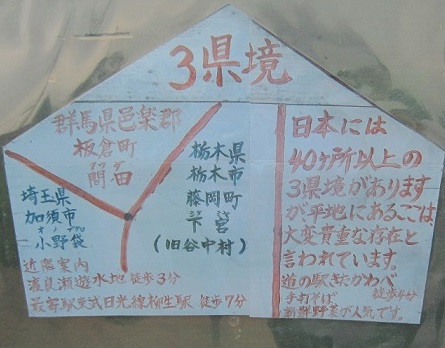 3県境
群馬県邑楽郡
板倉町
埼玉県
加須市
小野袋
栃木県
栃木市
藤岡町
下宮
(旧谷中村)
近隣案内
渡良瀬遊水地 徒歩3分
最寄駅 東武日光線柳生駅 徒歩7分
日本には
40ヶ所以上の
3県境があります
が平地にあるここは、
大変貴重な存在と
言われています。
道の駅きたかわべ
徒歩4分
手打そば
新鮮野菜が人気です。